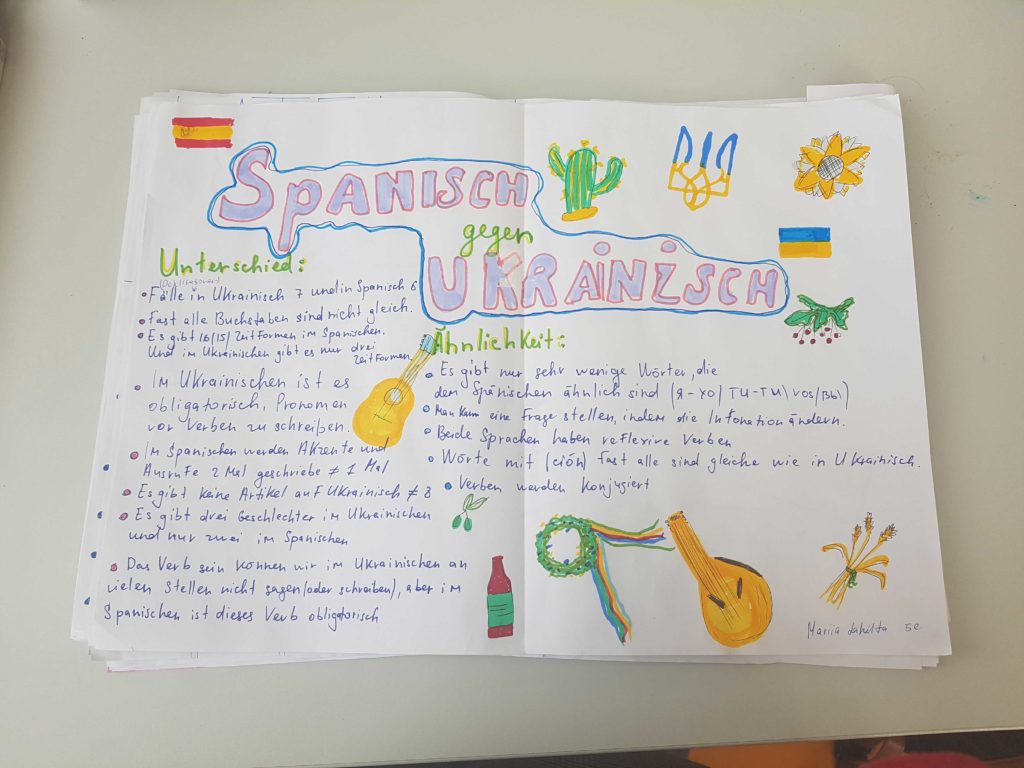 SPANISCH
gegen
UKRAINISCH
Unterschied:
Fälle in Ukrainisch 7 und in Spanisch 6
Fast alle Buchstaben sind nicht gleich.
Es gibt 16/15/ Zeitformen im Spanischen.
Und im Ukrainischen gibt es nur drei
Zeitformen.
Im Ukrainischen ist es
obligatorisch, Pronomen
vor Verben zu schreißen.
Im Spanischen werden Akzente und
Ausrufe 2 Mal geschriebe ≠ 1 Mal
Es gibt keine Artikel auf Ukrainisch ≠ 8
Es gibt drei Geschlechter im Ukrainischen
und nur zwei im Spanischen
Das Verb sein können wir im Ukrainischen an
vielen Stellen nicht sagen (oder schreiben), aber im
Spanischen ist dieses Verb obligatorisch
Ähnlichkeit:
Es gibt nur sehr wenige Wörter, die
dem Spänischen ähnlich sind (Я-YO/ TU-ТИ/ VOS/ВИ)
Man kann eine Frage stellen, indem die Intonation ändern.
Beide Sprachen haben reflexive Verben
Wörte mit (ción) fast alle sind gleiche wie in Ukrainisch.
Verben werden konjugiert
Mariia 5e